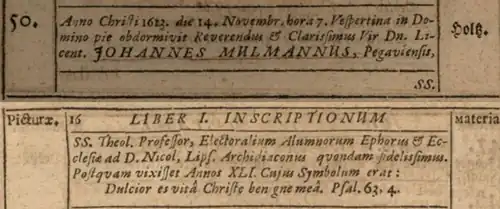 50.
Anno Christi 1613. die 14. Novembr. hora 7. Vespertina in Do-
mino pie obdormivit Reverendus & Clarissimus Vir Dn. Li-
cent. JOHANNES MULMANNUS, Pegaviensis,
SS.
Holtz.
Picturæ.
16 LIBER I. INSCRIPTIONUM
Materia
SS. Theol. Professor, Electoralium Alumnorum Ephorus & Ec-
clesiæ ad D. Nicol. Lips. Archidiaconus quondam fidelissimus.
Postquam vixisset Annos XLI. Cujus Symbolum erat:
Dulcior es vitâ Christe benigne meâ. Psal. 63, 4.